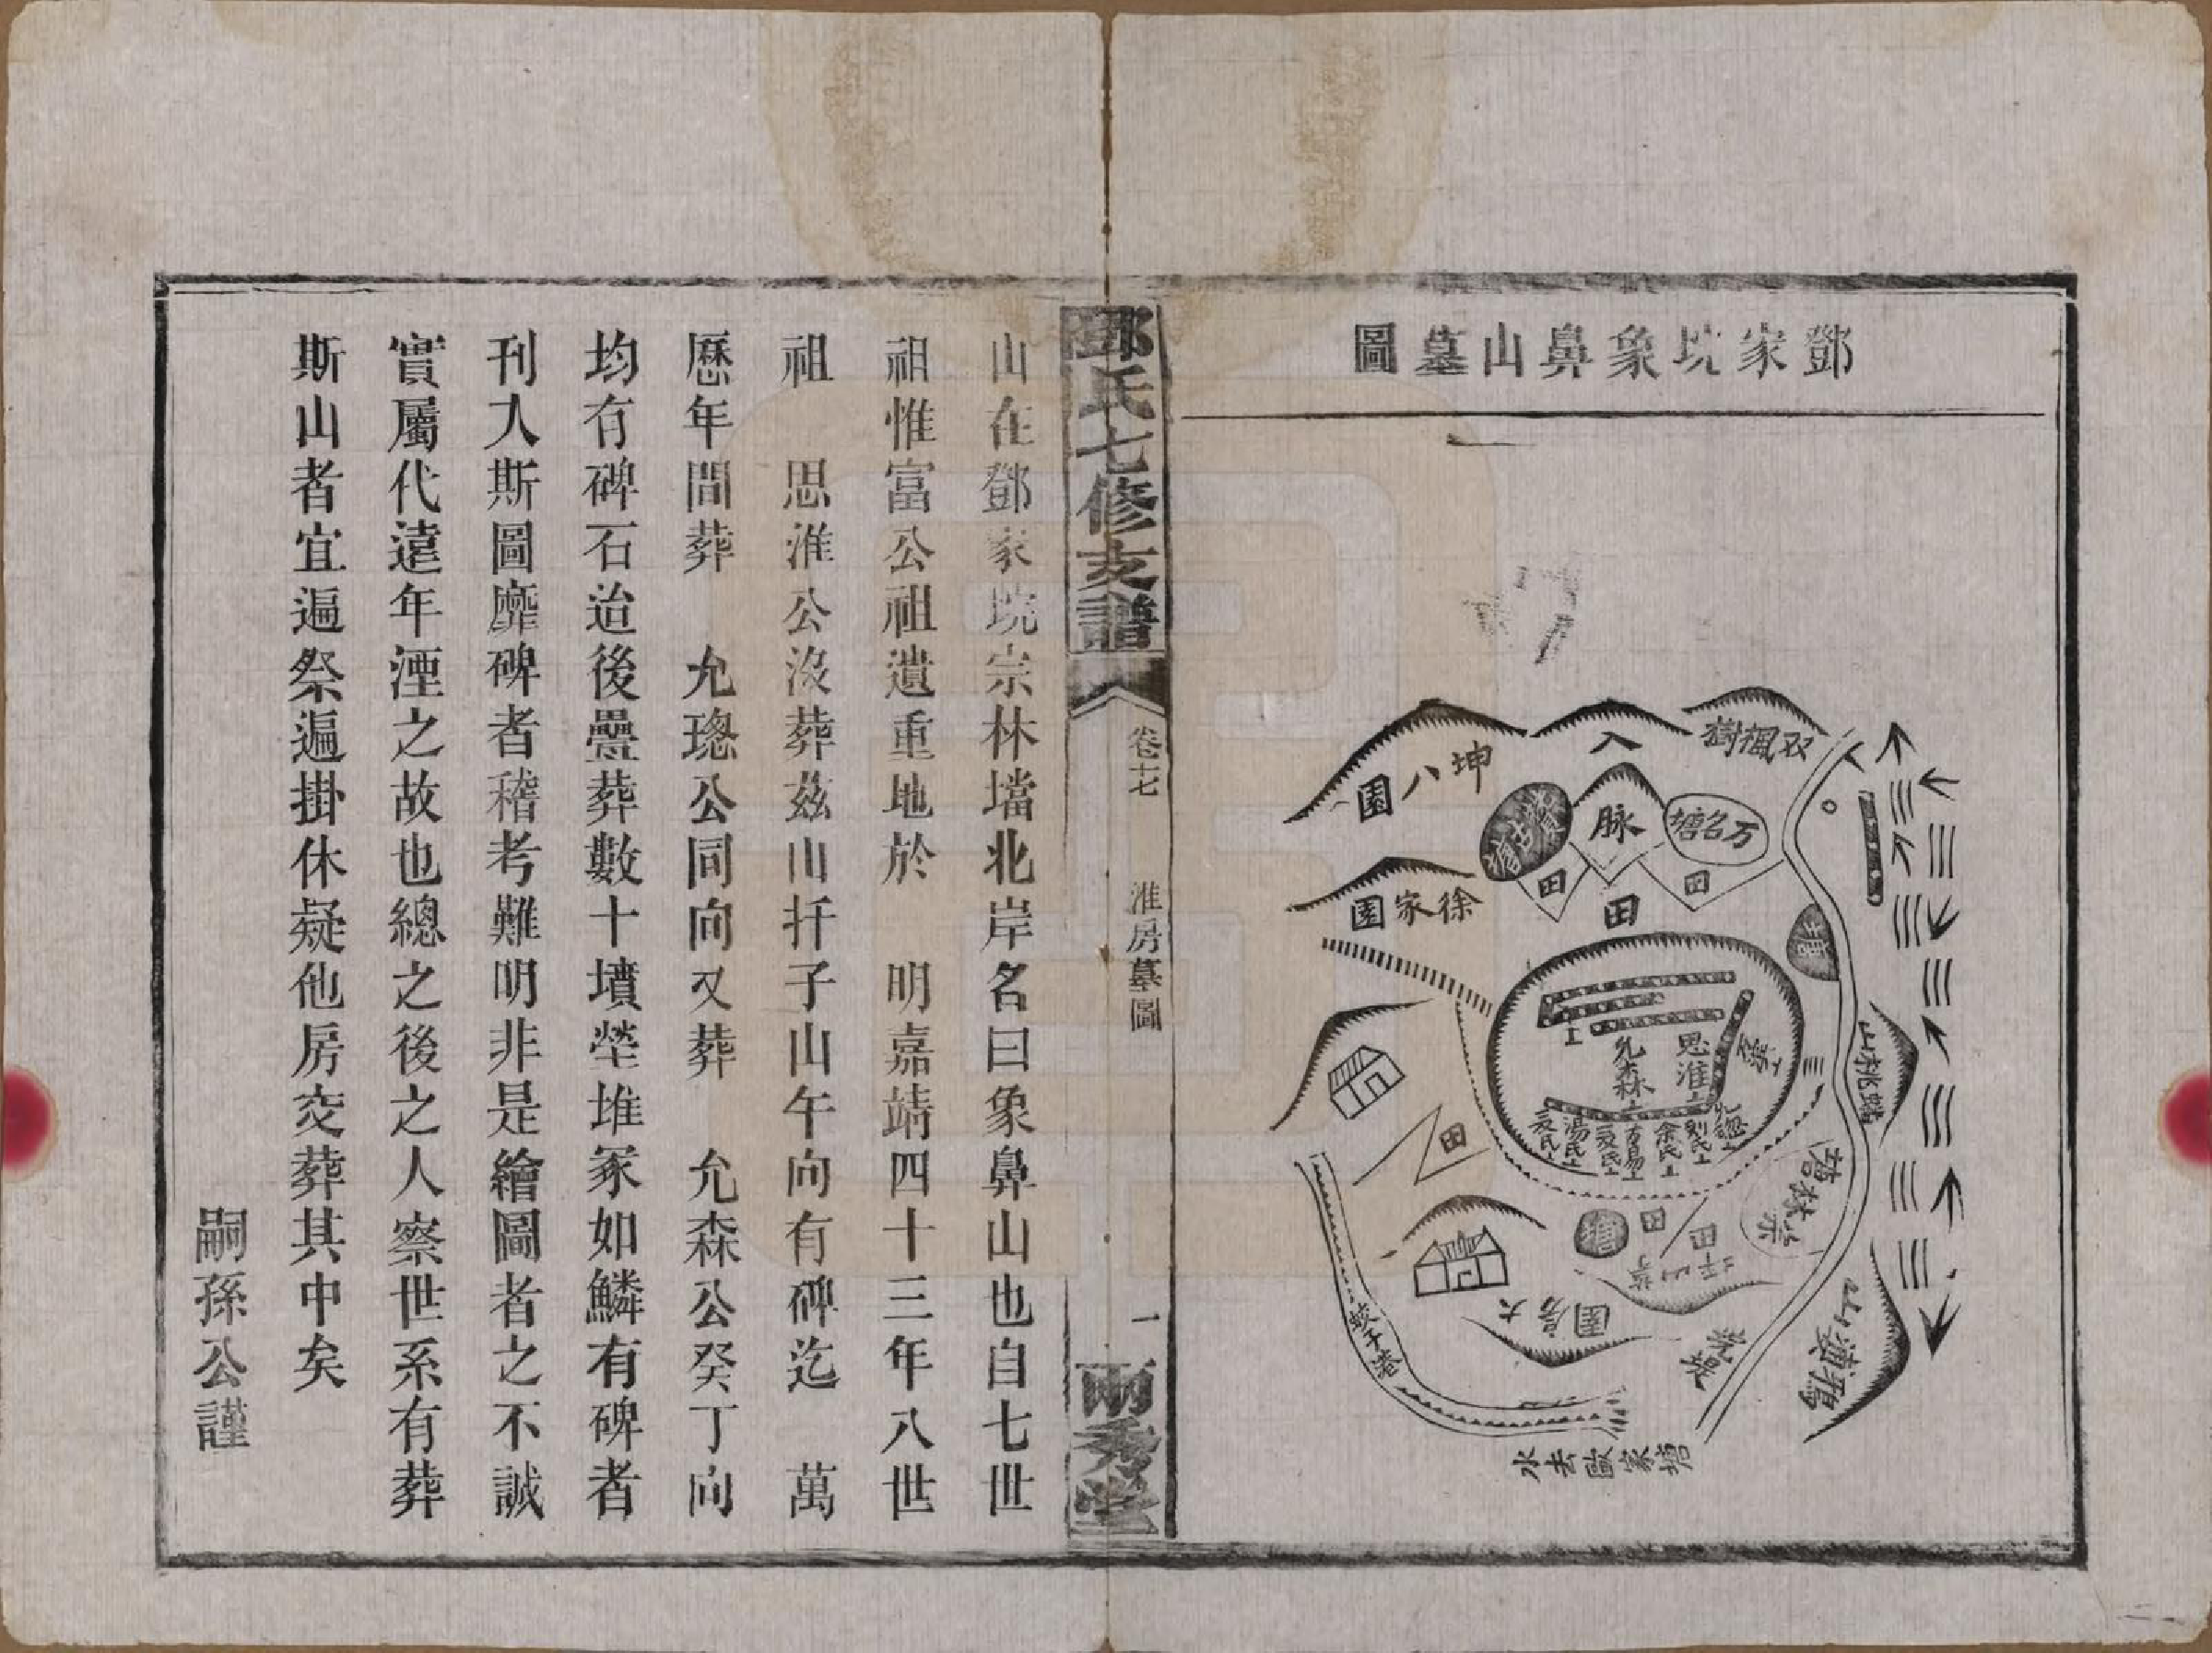 鄧家垸象鼻山墓圖
双楓樹
入
坤八園
脉
万名塘
田
田
田
徐家園
塘
思淮
允森
余氏
湯氏
田
宗林塘
塘
田
田
大房園
蛟子港
塘家歐去水
鄧氏七修支譜
卷十七
淮房墓圖
一
兩秀堂
山在鄧家垸宗林壋北岸名曰象鼻山也自七世
祖惟富公祖遺重地於 明嘉靖四十三年八世
祖 思淮公沒葬茲山扦子山午向有碑迄 萬
歷年間葬 允璁公同向又葬 允森公癸丁向
均有碑石迨後疊葬數十墳塋堆冢如鱗有碑者
刊入斯圖靡碑者稽考難明非是繪圖者之不誠
實屬代遠年湮之故也總之後之人察世系有葬
斯山者宜遍祭遍掛休疑他房交葬其中矣
嗣孫公謹